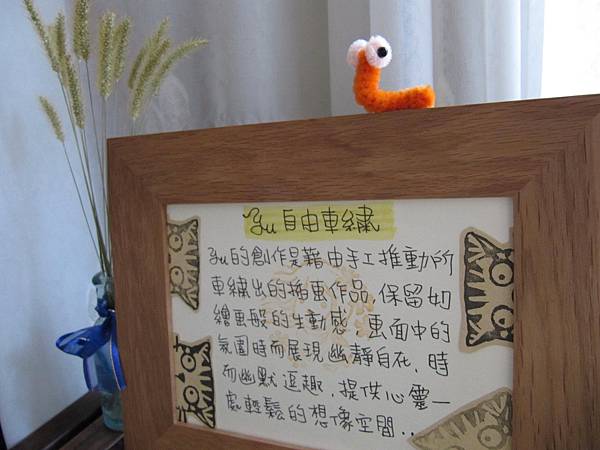 Yu 自由車繡
Yu的創作是藉由手工推動所
車繡出的插畫作品,保留如
繪畫般的生動感,畫面中的
氛圍時而展現幽靜自在,時
而幽默逗趣,提供心靈一
處輕鬆的想像空間...